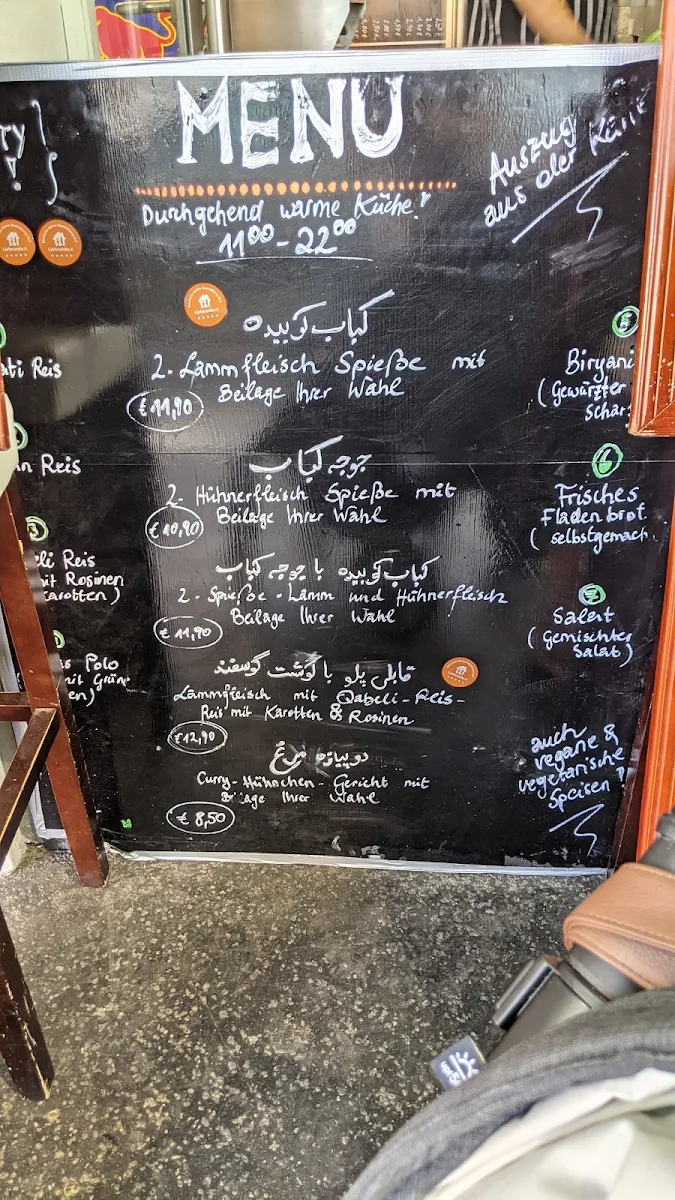 MENU
Auszug
aus der Karte
Durchgehend warme Küche!
11⁰⁰ - 22⁰⁰
TY
!
Lieferando.at
Lieferando.at
Lieferando.at
کباب کوبیده
2. Lammfleisch Spieße mit
Beilage Ihrer Wahl
€ 11,90
جوجه کباب
2. Hühnerfleisch Spieße mit
Beilage Ihrer Wahl
€ 10,90
کباب کوبیده با جوجه کباب
2. Spieße - Lamm und Hühnerfleisch
Beilage Ihrer Wahl
€ 11,90
قابلی پلو با گوشت گوسفند
Lammfleisch mit Qabeli-Reis-
Reis mit Karotten & Rosinen
€ 12,90
دوپیازه مرغ
Curry-Hühnchen-Gericht mit
Beilage Ihrer Wahl
€ 8,50
ati Reis
n Reis
3
eli Reis
mit Rosinen
Karotten)
s Polo
mit Grün
en)
5
Biryani
(Gewürzter
schar
6
Frisches
Fladenbrot
(selbstgemach
7
Salat
(Gemischter
Salat)
auch
vegane &
vegetarische
Speisen!